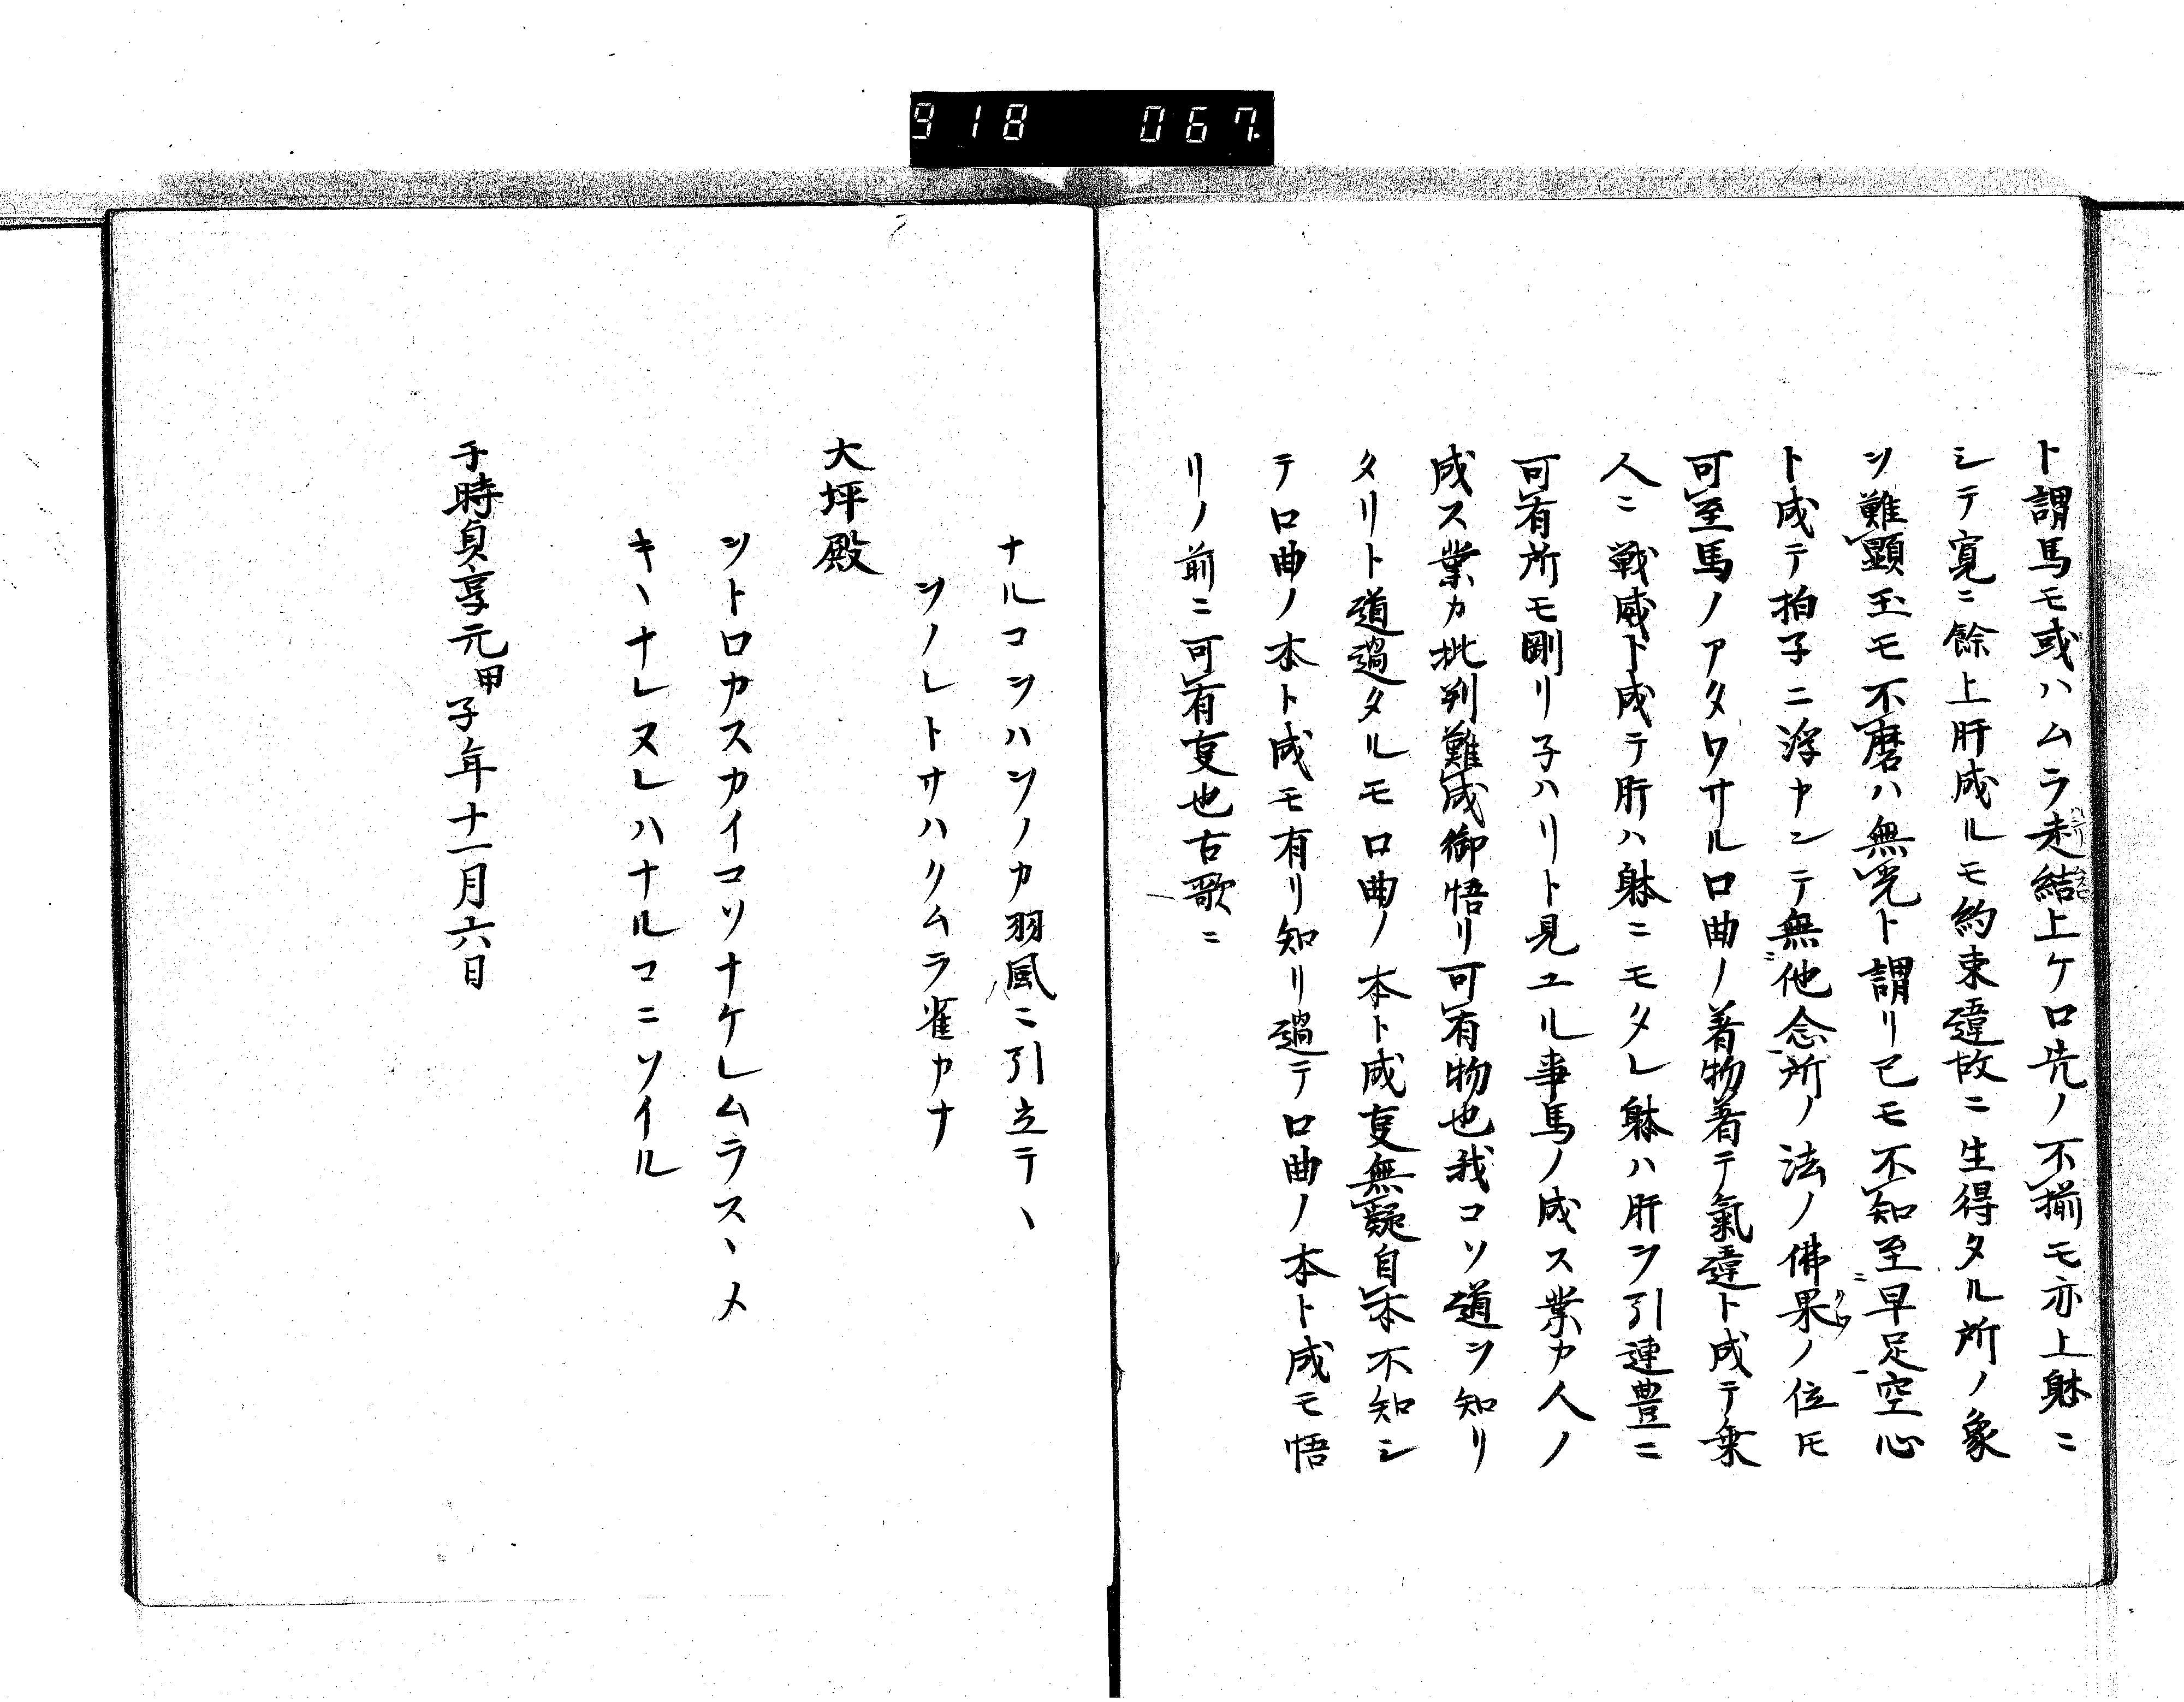 918 067
ト謂馬モ或ハムラ走結上ケ口先ノ不揃モ亦上躰ニ
シテ寛ニ餘上肝成ルモ約束違故ニ生得タル所ノ象
ヲ難顕玉モ不磨ハ無光ト謂リ已モ不知至早足空心
ト成テ拍子ニ浮ヤンテ無他念所ノ法ノ佛果ノ位ニモ
可至馬ノアタワサル口曲ノ着物着テ氣違ト成テ乗
人ニ戦威ト成テ肝ハ躰ニモタレ躰ハ肝ヲ引連豊ニ
可有所モ剛リ子ハリト見ユル事馬ノ成ス業カ人ノ
成ス業カ批判難成御悟リ可有物也我コソ道ヲ知リ
タリト道過タルモ口曲ノ本ト成㕝無疑自本不知シ
テ口曲ノ本ト成モ有リ知リ過テ口曲ノ本ト成モ悟
リノ前ニ可有㕝也古歌ニ
ナルコヲハヲノカ羽風ニ引立テヽ
ヲノレトサハクムラ雀カナ
大坪殿
ヲトロカスカイコソナケレムラスヽメ
キヽナレヌレハナルコニソイル
于時貞享元甲子年十一月六日